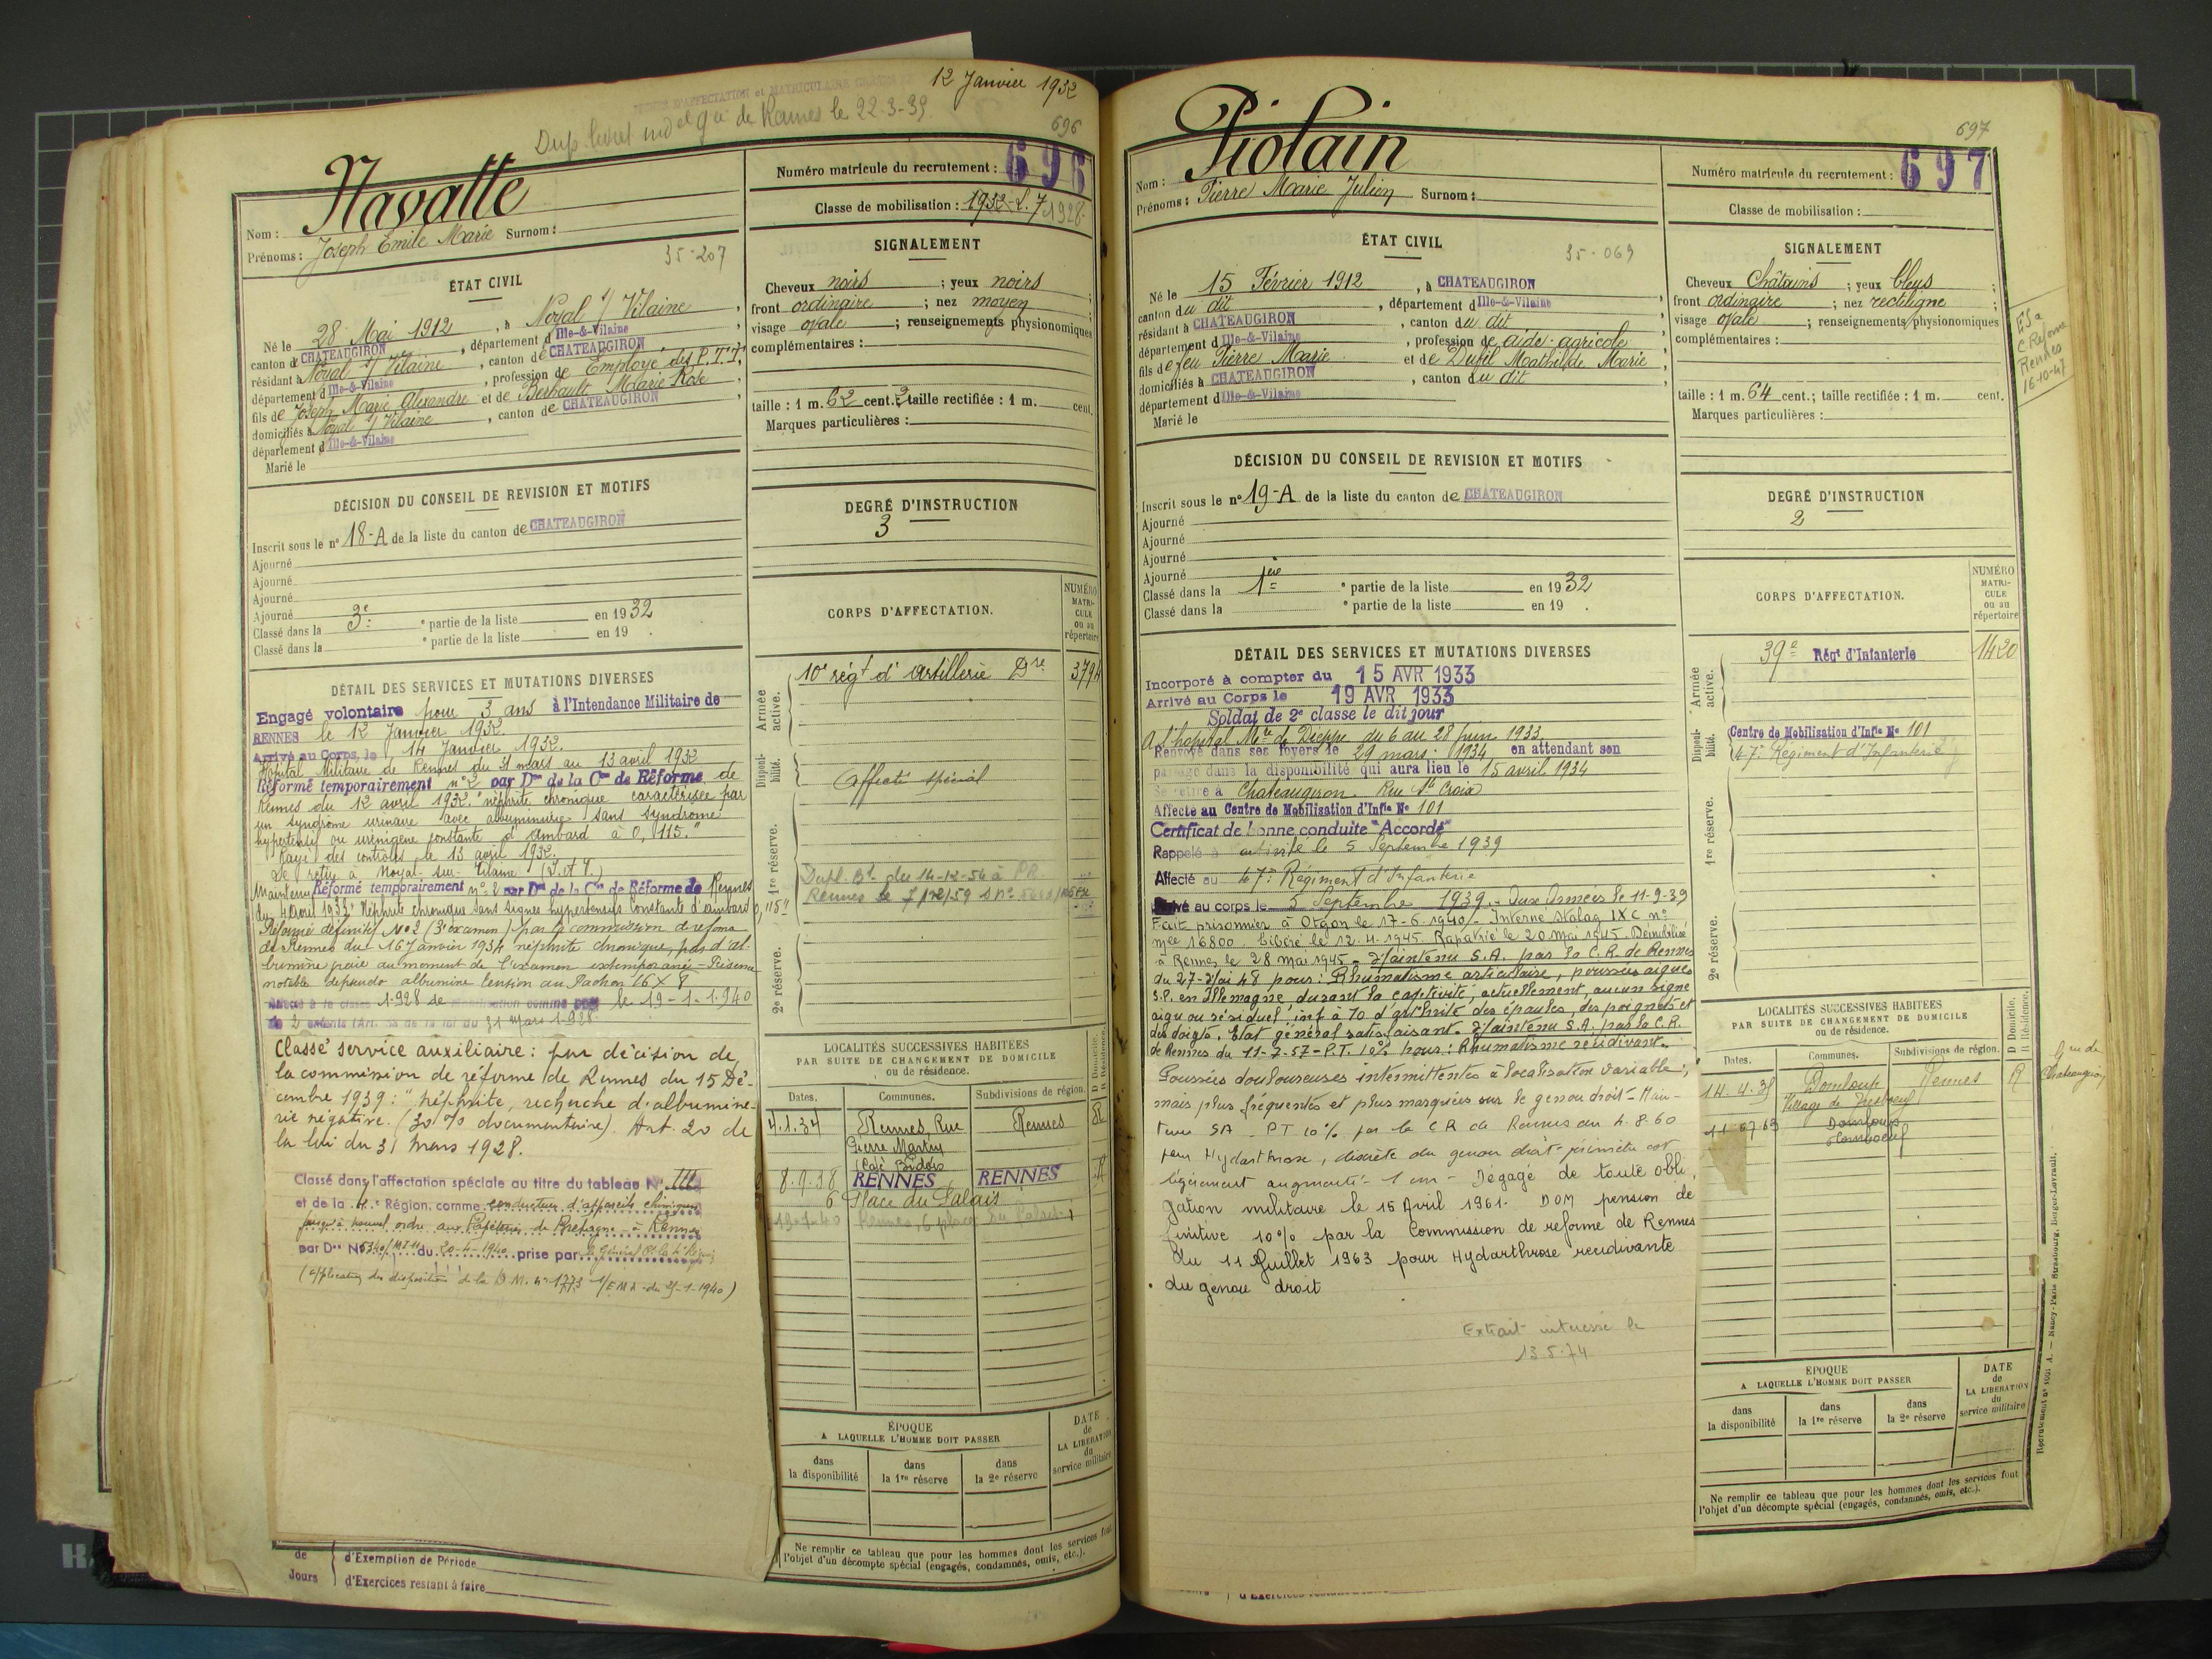 12 Janvier 1932
696
Navatte
Nom :
Prénoms : Joseph Emile Marie Surnom :
35-207
Numéro matricule du recrutement : 696
Classe de mobilisation : 1932-2.7 1928
ÉTAT CIVIL
Né le 28 Mai 1912, à Noyal s/ Vilaine,
canton de CHATEAUGIRON, département d Ille-&-Vilaine,
résidant à Noyal s/ Vilaine, canton de CHATEAUGIRON,
département d Ille-&-Vilaine, profession de Employé des P.T.T,
fils de Joseph Marie Alexandre et de Berhault Marie Rose,
domiciliés à Noyal s/ Vilaine, canton de CHATEAUGIRON,
département d Ille-&-Vilaine
Marié le
SIGNALEMENT
Cheveux noirs ; yeux noirs ;
front ordinaire ; nez moyen ;
visage ovale ; renseignements physionomiques
complémentaires :
taille : 1 m. 62 cent. 2 taille rectifiée : 1 m. cent.
Marques particulières :
DÉCISION DU CONSEIL DE REVISION ET MOTIFS
Inscrit sous le n° 18-A de la liste du canton de CHATEAUGIRON
Ajourné
Ajourné
Ajourné
Ajourné
Classé dans la 3e ° partie de la liste en 1932
Classé dans la ° partie de la liste en 19 .
DEGRÉ D'INSTRUCTION
3
CORPS D'AFFECTATION.
NUMÉRO MATRICULE ou au répertoire
Armée active.
10e régt d'artillerie Dre
3794
Disponibilité.
affecté spécial
1re réserve.
Dupl. Bt. du 14-12-54 à PR
2e réserve.
DÉTAIL DES SERVICES ET MUTATIONS DIVERSES
Engagé volontaire pour 3 ans à l'Intendance Militaire de
RENNES le 12 Janvier 1932.
Arrivé au Corps, le 14 Janvier 1932.
Hôpital Militaire de Rennes du 31 mars au 13 avril 1932
Réformé temporairement n° 2 par Don de la Con de Réforme de
Rennes du 12 avril 1932. "néphrite chronique caractérisée par
un syndrome urinaire avec albuminurie sans syndrome
hypertensif ou urénigène constante d'ambard à 0,115."
Rayé des contrôles le 13 avril 1932.
Se retire à Noyal-sur-Vilaine (I. et V.)
Maintenu Réformé temporairement n° 2 par Don de la Con de Réforme de Rennes
du 4 avril 1933. Néphrite chronique sans signes hypertensifs constante d'ambard 0,115"
Réformé définitif N° 2 (3e examen) par la commission de réforme
de Rennes du 16 Janvier 1934 néphrite chronique, pas d'al-
bumine vraie au moment de l'examen extemporané - Présence
notable de pseudo albumine tension au Pachon 16 X 8
1928 de mobilisation comme père le 19-1-1940
de 2 enfants (Art. de la loi du 31 mars 1928.
Classé service auxiliaire : par décision de
la commission de réforme de Rennes du 15 Dé-
cembre 1939 : "néphrite, recherche d'albumine-
rie négative. (30% documentaire). Art. 20 de
la loi du 31 mars 1928.
Classé dans l'affectation spéciale au titre du tableau N° III
et de la 4e Région, comme conducteur d'appareils chimiques
jusqu'à nouvel ordre aux Papeteries de Bretagne à Rennes
par Don N° 5340/MI-11 du 20-4-1940 prise par le Général Ct la 4e Région
(application des dispositions de la D.M. n° 1773 1/EMA du 25-1-1940)
LOCALITÉS SUCCESSIVES HABITÉES
PAR SUITE DE CHANGEMENT DE DOMICILE
ou de résidence.
D Domicile. R Résidence.
Dates. Communes. Subdivisions de région.
4.1.34 Rennes, Rue Rennes R
Pierre Martin
(Café Bidois
8.9.38 RENNES RENNES R
6 Place du Palais
19-1-40 Rennes, 6 place du Palais
ÉPOQUE
A LAQUELLE L'HOMME DOIT PASSER
dans la disponibilité
dans la 1re réserve
dans la 2e réserve
DATE de LA LIBÉRATION du service militaire
Ne remplir ce tableau que pour les hommes dont les services font
l'objet d'un décompte spécial (engagés, condamnés, omis, etc.).
de Jours
d'Exemption de Période
d'Exercices restant à faire
697
Piolain
Nom :
Prénoms : Pierre Marie Julien Surnom :
35-069
Numéro matricule du recrutement : 697
Classe de mobilisation :
ÉTAT CIVIL
Né le 15 Février 1912, à CHATEAUGIRON
canton du dit, département d Ille-&-Vilaine,
résidant à CHATEAUGIRON, canton du dit,
département d Ille-&-Vilaine, profession de aide-agricole
fils de feu Pierre Marie et de Dufil Mathilde Marie,
domiciliés à CHATEAUGIRON, canton du dit,
département d Ille-&-Vilaine
Marié le
SIGNALEMENT
Cheveux Châtains ; yeux bleus ;
front ordinaire ; nez rectiligne ;
visage ovale ; renseignements physionomiques
complémentaires :
taille : 1 m. 64 cent.; taille rectifiée : 1 m. cent.
Marques particulières :
C. Reforme
Rennes
16-10-47
DÉCISION DU CONSEIL DE REVISION ET MOTIFS
Inscrit sous le n° 19-A de la liste du canton de CHATEAUGIRON
Ajourné
Ajourné
Ajourné
Ajourné
Classé dans la 1ère ° partie de la liste en 1932
Classé dans la ° partie de la liste en 19 .
DEGRÉ D'INSTRUCTION
2
CORPS D'AFFECTATION.
NUMÉRO MATRICULE ou au répertoire
Armée active.
39e Régt d'Infanterie
1420
Disponibilité.
Centre de Mobilisation d'Infie N° 101
47e Régiment d'Infanterie
1re réserve.
2e réserve.
DÉTAIL DES SERVICES ET MUTATIONS DIVERSES
Incorporé à compter du 15 AVR 1933
Arrivé au Corps le 19 AVR 1933
Soldat de 2e classe le dit jour
A l'hôpital Mre de Dieppe du 6 au 28 Juin 1933.
Renvoyé dans ses foyers le 29 mars 1934 en attendant son
passage dans la disponibilité qui aura lieu le 15 avril 1934
Se retire à Chateaugiron Rue Ste Croix
Affecté au Centre de Mobilisation d'Infie N° 101
Certificat de bonne conduite "Accordé"
Rappelé à activité le 5 Septembre 1939
Affecté au 47e Régiment d'Infanterie
Arrivé au corps le 5 Septembre 1939. Aux Armées le 11-9-39
Fait prisonnier à Osson le 17-6-1940. Interné Stalag IX C n°
mle 16800. Libéré le 12-4-1945. Rapatrié le 20 Mai 1945 Démobilisé
à Rennes le 28 Mai 1945 - Maintenu S.A. par la C.R. de Rennes
du 27-Mai 48 pour : Rhumatisme articulaire, poussées aigues
S.P. en Allemagne, durant la captivité, actuellement, aucun signe
aigu ou résiduel, inf à 10 d'arthrite des épaules, des poignets et
des doigts. Etat général satisfaisant. Maintenu S.A. par la C.R.
de Rennes du 11-7-57-P.T. 10% pour : Rhumatisme récidivant.
Poussées douloureuses intermittentes à localisation variable,
mais plus fréquentes et plus marquées sur le genou droit - Main-
tenu SA - PT 10% par la CR de Rennes du 4.8.60
pour Hydarthrose, discrète du genou droit - périmètre est
légèrement augmenté - 1 cm - Dégagé de toute obli-
gation militaire le 15 Avril 1961. DOM pension dé
finitive 10% par la Commission de réforme de Rennes
du 11 Juillet 1963 pour Hydarthrose récidivante
du genou droit
Extrait intéressé le
13.5.74
LOCALITÉS SUCCESSIVES HABITÉES
PAR SUITE DE CHANGEMENT DE DOMICILE
ou de résidence.
D Domicile. R Résidence.
Dates. Communes. Subdivisions de région.
14.4.35 Domloup Rennes R
Village de
11 07 63 Domloup
ÉPOQUE
A LAQUELLE L'HOMME DOIT PASSER
dans la disponibilité
dans la 1re réserve
dans la 2e réserve
DATE de LA LIBÉRATION du service militaire
Ne remplir ce tableau que pour les hommes dont les services font
l'objet d'un décompte spécial (engagés, condamnés, omis, etc.).